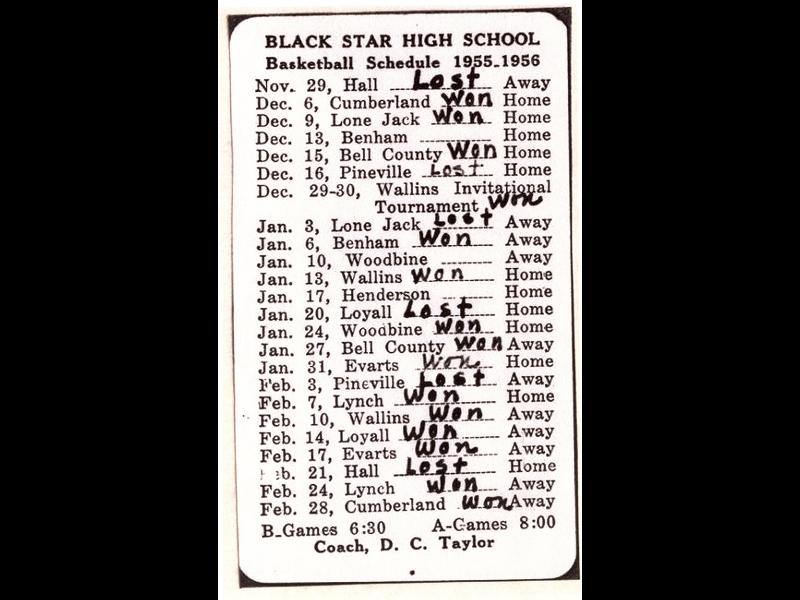 BLACK STAR HIGH SCHOOL
Basketball Schedule 1955-1956
Nov. 29, Hall Lost Away
Dec. 6, Cumberland Won Home
Dec. 9, Lone Jack Won Home
Dec. 13, Benham Home
Dec. 15, Bell County Won Home
Dec. 16, Pineville Lost Home
Dec. 29-30, Wallins Invitational
Tournament Won
Jan. 3, Lone Jack Lost Away
Jan. 6, Benham Won Away
Jan. 10, Woodbine Away
Jan. 13, Wallins Won Home
Jan. 17, Henderson Home
Jan. 20, Loyall Lost Home
Jan. 24, Woodbine Won Home
Jan. 27, Bell County Won Away
Jan. 31, Evarts Won Home
Feb. 3, Pineville Lost Away
Feb. 7, Lynch Won Home
Feb. 10, Wallins Won Away
Feb. 14, Loyall Won Away
Feb. 17, Evarts Won Away
Feb. 21, Hall Lost Home
Feb. 24, Lynch Won Away
Feb. 28, Cumberland Won Away
B-Games 6:30 A-Games 8:00
Coach, D. C. Taylor